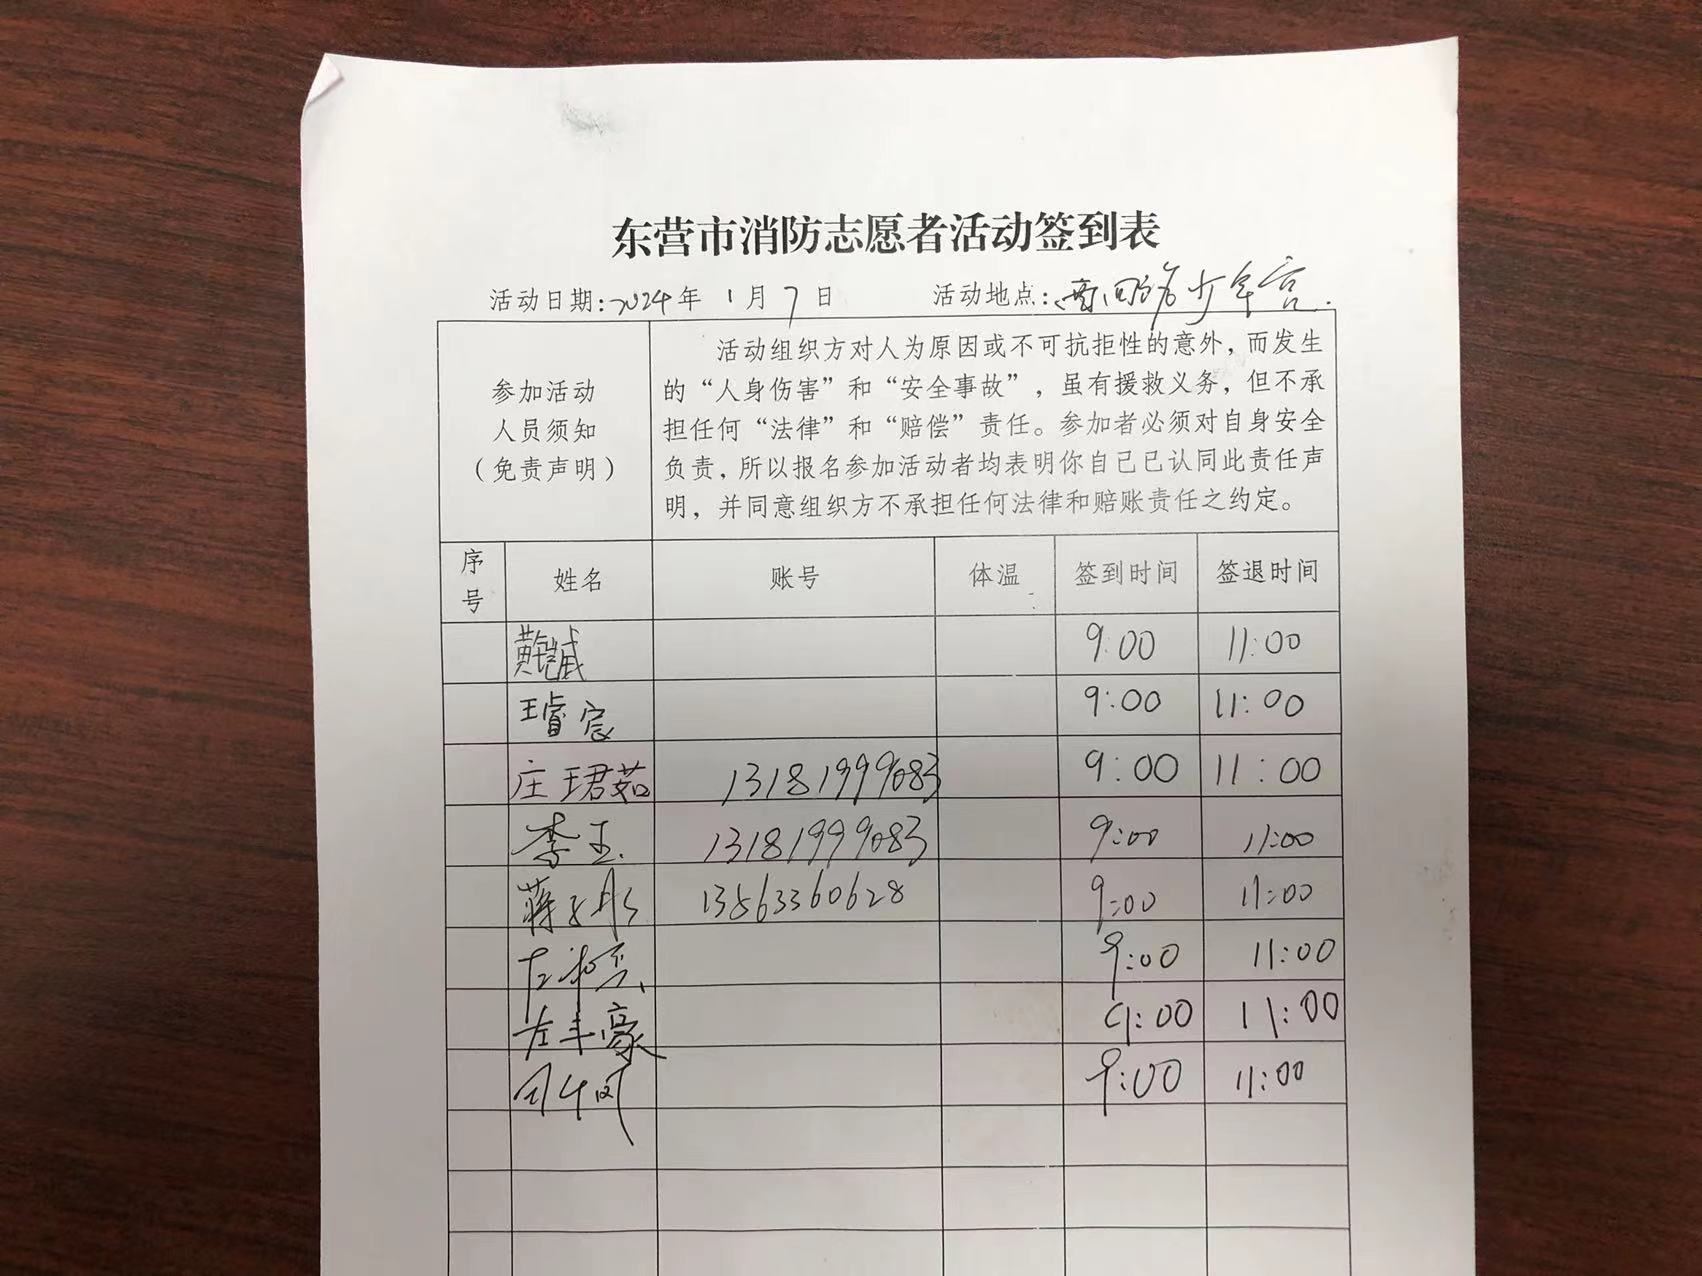 东营市消防志愿者活动签到表
活动日期:2024年 1月 7日 活动地点: 少年宫.
参加活动
人员须知
（免责声明）
活动组织方对人为原因或不可抗拒性的意外，而发生
的“人身伤害”和“安全事故”，虽有援救义务，但不承
担任何“法律”和“赔偿”责任。参加者必须对自身安全
负责，所以报名参加活动者均表明你自己已认同此责任声
明，并同意组织方不承担任何法律和赔账责任之约定。
序号 姓名 账号 体温 签到时间 签退时间
黄铠威 9:00 11:00
王睿宸 9:00 11:00
庄珺茹 13181999083 9:00 11:00
李玉 13181999083 9:00 11:00
蒋子彤 13563360628 9:00 11:00
9:00 11:00
左丰豪 9:00 11:00
9:00 11:00